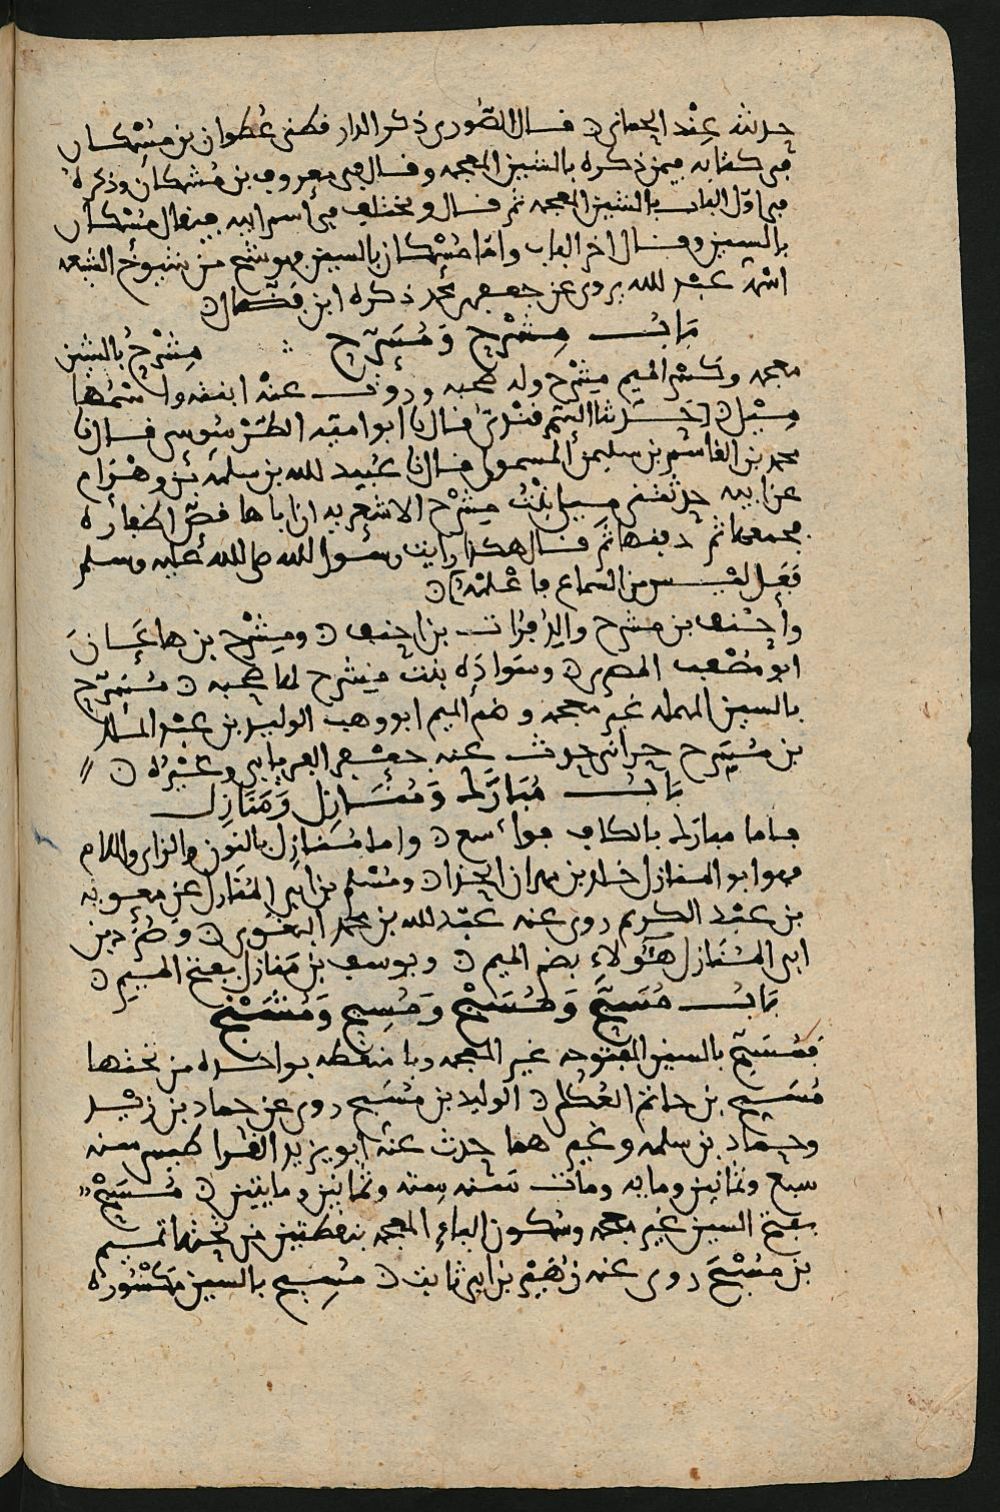 حدثنه عِنْد الحماني ن قال الصُّوري ذكر الدارقطنى عُطوان بن مُشكان
في كتابه فيمن ذكره بالشين المعجمه وقال في معروف بن مُشكان وذكره
في اوّل الباب بالشين المعجمه ثم قال ويختلف في اسم ابيه فيقال مسكان
بالسين وقال اخر الباب وامّا مُسْكان بالسين فهو شيخ من شيوخ الشيعه
اسمه عبد الله يروى عن جعفر بن محمد ذكره ابن فضّال ن
بَابُ مِشْرَح وَمُسَرَّح مِشْرَحُ بالشين
معجمه وكسر الميم مِشْرَح وله صحبه وروت عنه ابنته واسْمُها
مِيْل ن حَدَّثنا الهيثم قال نا ابو اميه الطرَسُوسي قال نا
محمد بن القاسم بن سليمن قال نا عُبيد الله بن سلمه بن وهْرَام
عن ابيه حدثتنى ميل بنْتُ مِشْرَح الاشعريه ان اباها قصّ اظفاره
فجمعها ثم دفنها ثم قال هكذا رايت رسول الله صلى الله عليه وسلم
فَعَل ليْس من السماع ما عَلَمْته ن
وأحْنف بن مشرح والد فُرات بن احنف ن ومِشْرَح بن هاعَان
ابو مصْعب المصري ن وسَوادَه بنت مِشرح لها صحبه ن مُسَرَّح
بالسين المهمله غير معجمه وضم الميم ابو وهب الوليد بن عبد الملك
بن مُسَرح حرانى حدث عنه جعفر الفريابى وغيْرُه ن
بَابُ مُبَارَك وَمُنَازِل وَمَنَازِل
فاما مبارَك بالكاف فواسع ن واما مُنَازِل بالنون والزاى واللام
فهو ابو المنازل خالد بن مهران الحذا ن ومُسْلم بن ابى المُنَازل عن معويه
بن عبْد الكريم روى عنه عبْد الله بن محمد البغَوى ن و بن
ابى المُنَازل هَؤُلاء بضم الميم ن ويوسف بن مَنازل بفتح الميم ن
بَابُ مُسَبَّح وَمُسَيْح وَمُسِيح وَمُشَنَّج
فمُسَبّح بالسين المفتوحه غير المعجمه وبا منقطه بواحده من تحتها
مُسَبح بن حاتم العُكلى ن الوليد بن مُسَبح روى عن حماد بن زيْد
وحماد بن سلمه وغيرهما حدث عنه ابو يزيد القراطيسى سنه
سبع وثمانين ومايه ومات سنه سته وثمانين ومايتين ن مُسَيْح
بفتح السين غير معجمه وسُكون الياء المعجمه بنقطتين من تحتها تميم
بن مُسَيْح روى عنه زُهَيْر بن ابى ثابت ن مُسِيح بالسين مَكسُوره